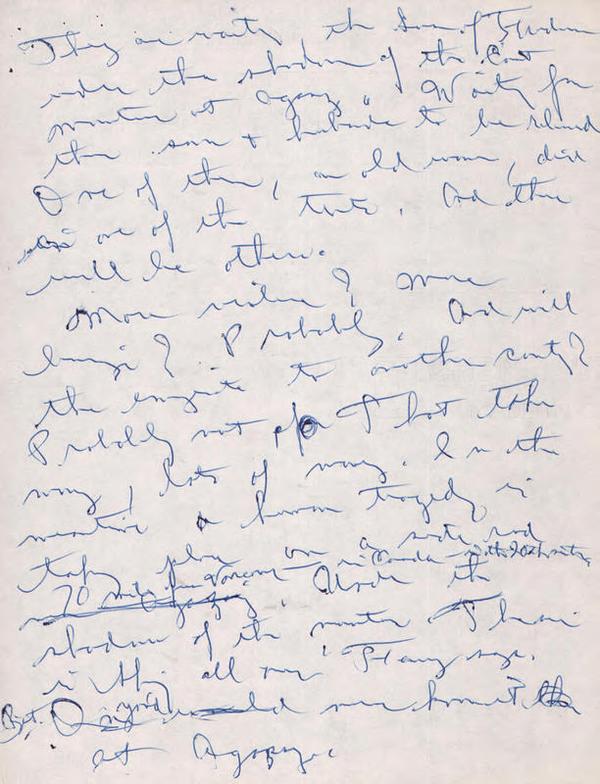 They are waiting, the Sons of Freedom
under the shadow of the
mountain at Agassiz. Waiting for
their sons & husbands to be released
One of them, an old woman, died
in one of the tents. And there
will be others.
More violence? More
burnings? Probably. And will
they emigrate to another country?
Probably not for that takes
money, lots of money. In the
meantime a human tragedy is
taking place on a side road
70 miles from Vancouver in Canada
Agassiz. Under the
shadow of the mountain. There
is all over says.
But
at Agassiz.